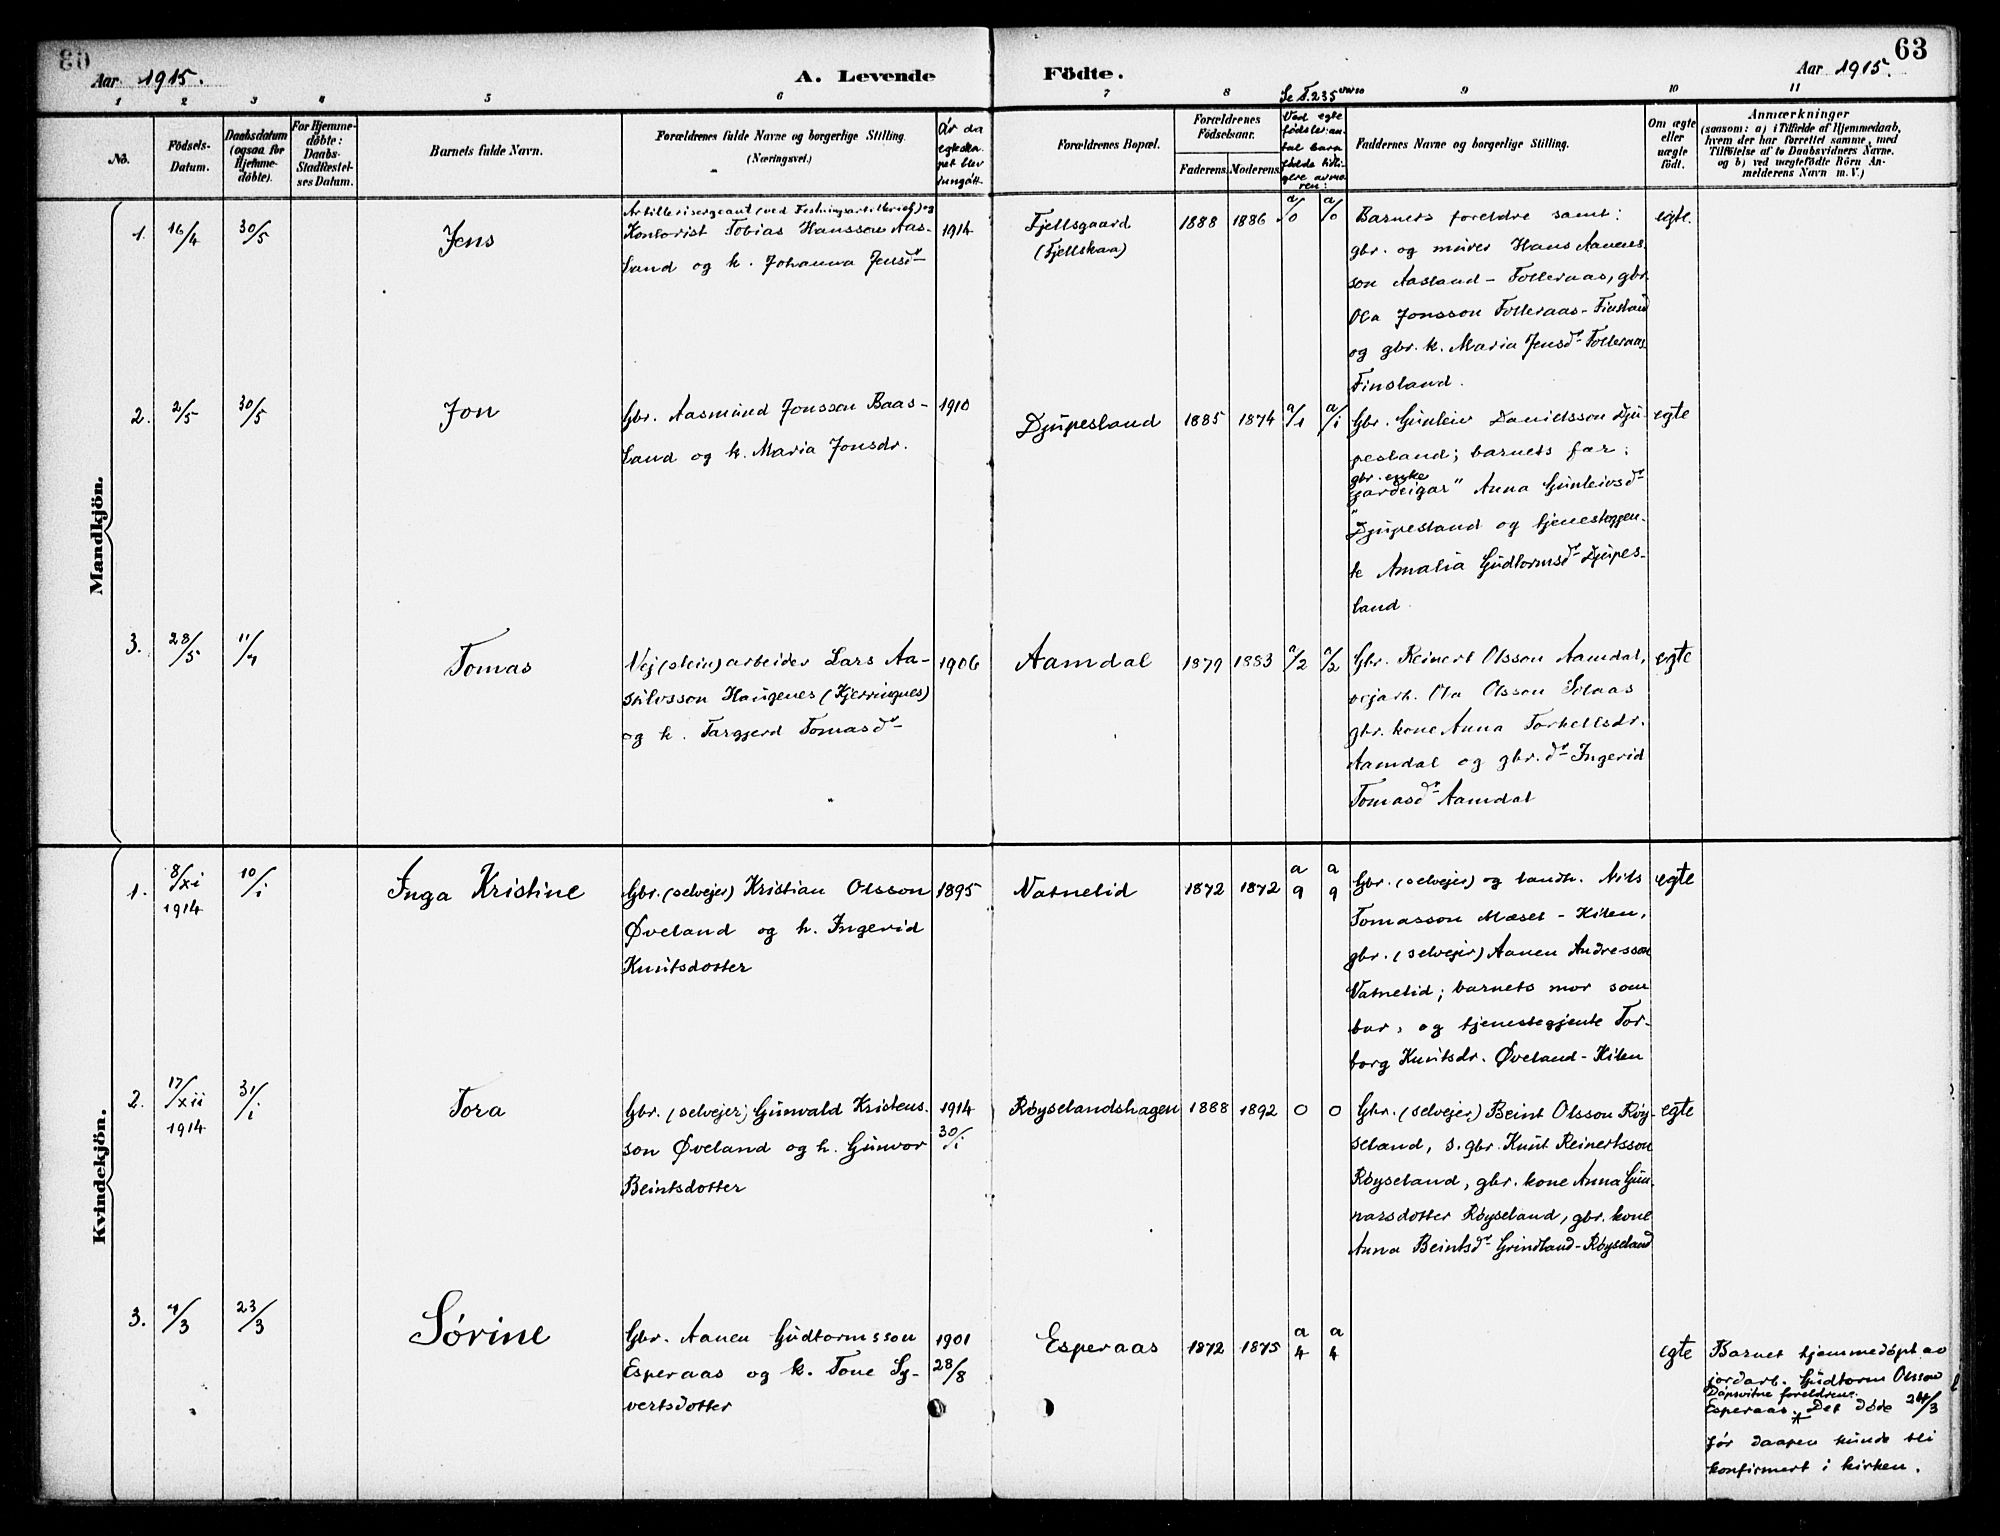 63
Aar 1915.
A. Levende Födte.
Aar 1915.
1 2 3 4 5 6 7 8 9 10 11
Se F. 235 verso
No.
Födsels-Datum.
Daabsdatum (ogsaa for Hjemme-döbte).
For Hjemme-döbte: Daabs-Stadfæstel-ses Datum.
Barnets fulde Navn.
Forældrenes fulde Navne og borgerlige Stilling. (Næringsvei.)
År da egteska pet blev inngått
Forældrenes Bopæl.
Forældrenes Födselsaar.
Faderens. Moderens.
Faddernes Navne og borgerlige Stilling.
Om ægte eller uægte födt.
Anmærkninger
(saasom: a) i Tilfælde af Hjemmedaab,
hvem der har forrettet samme, med
Tilföielse af to Daabsvidners Navne.
og b) ved uægtefödte Börn An-
melderens Navn m. V.)
Mandkjön.
1. 16/4 30/5 Jens
Artillerisergeant (ved Festningsartilleriet) og
Kontorist Tobias Hansson Aas-
land og k. Johanna Jensdr
1914
Fjellsgaard
(Fjellskaa)
1888 1886 a/0 a/0
Barnets foreldre samt:
gbr. og murer Hans Aanens
son Aasland - Folleraas, gbr.
Ola Jonsson Folleraas-Finsland
og gbr. k. Maria Jensdr Folleraas
Finsland.
egte.
2. 2/5 30/5 Jon
Gbr. Aasmund Jonsson Baas-
land og k. Maria Jonsdr.
1910
Djupesland
1885 1874 a/1 a/1
Gbr. Gunleiv Danielsson Dju-
pesland; barnets far;
gbr. enke
"gardeigar" Anna Gunleivsdr
Djupesland og tjenestegjen-
te Amalia Gudtormsdr Djupes-
land
egte
3. 28/5 11/7 Tomas
Vej(stein)arbeider Lars Aa-
silvsson Haugenes (Kjerringnes)
og k. Targjerd Tomasdr
1906
Aamdal
1879 1883 a/2 a/2
Gbr. Reinert Olsson Aamdal,
vejarb. Ola Olsson Solaas
gbr. kone Anna Torkellsdr.
Aamdal og gbr. dr Ingerid
Tomasdr Aamdal
egte
Kvindekjön.
1. 8/xi 1914 10/i Inga Kristine
Gbr. (selvejer) Kristian Olsson
Øveland og h. Ingerid
Knutsdotter
1895
Vatnelid
1872 1872 a 9 a 9
Gbr. (selvejer) og landh. Nils
Tomasson Mæsel - Kilen,
gbr. (selvejer) Aanen Andresson
Vatnelid; barnets mor som
bar, og tjenestegjente Tor-
borg Knutsdr. Øveland-Kilen
egte
2. 17/xii 1914 31/i Tora
Gbr. (selvejer) Gunvald Kristens-
son Øveland og h. Gunvor
Beintsdotter
1914
30/i
Røyselandshagen
1888 1892 0 0
Gbr. (selvejer) Beint Olsson Røy-
seland, s. gbr. Knut Reinertsson
Røyseland, gbr. kone Anna Gun-
narsdotter Røyseland, gbr. kone
Anna Beintsdr Grindland-Røyseland
egte
3. 7/3 23/3 Sørine
Gbr. Aanen Gudtormsson
Esperaas og k. Tone Sy-
vertsdotter
1901
28/8
Esperaas
1872 1875 a 4 a 4
egte
Barnet hjemmedøpt av
jordarb. Gudtorm Olsson
Dåpsvitne foreldrene.
Esperaas. Det døde 24/3
før daapen kunde bli
konfirmert i kirken.